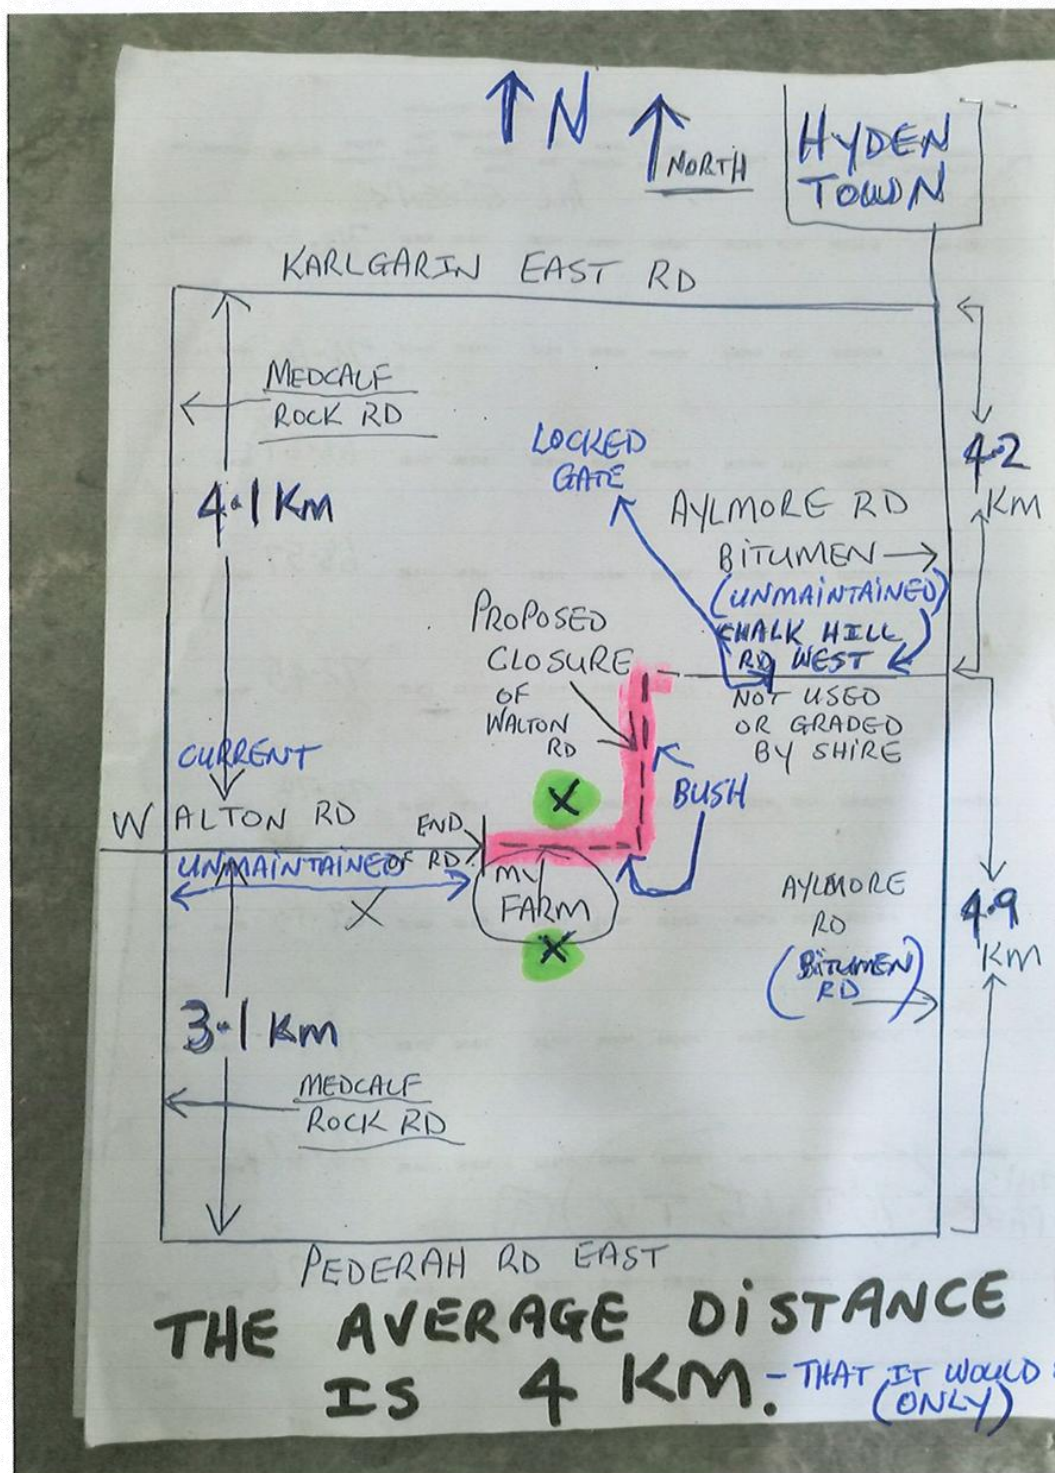 N
NORTH
HYDEN
TOWN
KARLGARIN EAST RD
MEDCALF
ROCK RD
4.1 Km
LOCKED
GATE
4.2
Km
AYLMORE RD
BITUMEN
(UNMAINTAINED)
CHALK HILL
RD WEST
NOT USED
OR GRADED
BY SHIRE
PROPOSED
CLOSURE
OF
WALTON
RD
CURRENT
X
BUSH
WALTON RD
END
OF RD
UNMAINTAINED
X
MY
FARM
X
AYLMORE
RD
(BITUMEN
RD)
4.9
Km
3.1 Km
MEDCALF
ROCK RD
PEDERAH RD EAST
THE AVERAGE DISTANCE
IS 4 KM. - THAT IT WOULD
(ONLY)